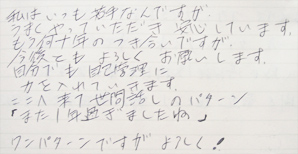 私はいつも苦手なんですが、
うまくやっていただき安心しています。
もう何十年のつき合いですが、
今後ともよろしくお願いします。
自分でも自己管理に
力を入れていきます。
ここへ来て世間話しのパターン
「また1年過ぎましたね」
ワンパターンですがよろしく!